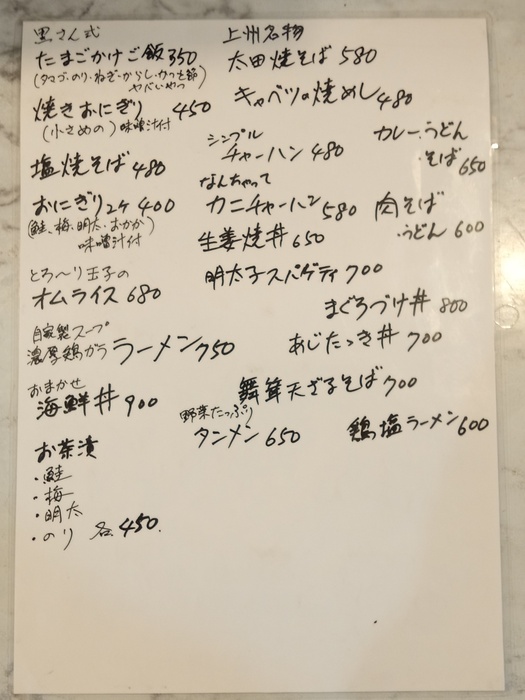 黒さん式
たまごかけご飯 350
(タマゴ・のり・ねぎ・からし・かつを節
ヤバいやつ
焼きおにぎり 450
(小さめの) 味噌汁付
塩焼そば 480
おにぎり2ケ 400
(鮭、梅、明太・おかか)
味噌汁付
とろ〜り玉子の
オムライス 680
自家製スープ
濃厚鶏ガラ ラーメン 750
おまかせ
海鮮丼 900
お茶漬
・鮭
・梅
・明太
・のり 各450.
上州名物
太田焼そば 580
キャベツの焼めし 480
シンプル
チャーハン 480
なんちゃって
カニチャーハン 580
生姜焼丼 650
明太子スパゲティ 700
カレーうどん
・そば 650
肉そば
・うどん 600
まぐろづけ丼 800
あじたたき丼 700
舞茸天ざるそば 700
野菜たっぷり
タンメン 650
鶏塩ラーメン 600